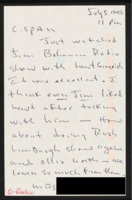 July 5 1995
11 PM
C-SPAN
Just watched
Jim Bohannon Radio
show with Newt Gingrich
It was excellent. I
think even Jim liked
Newt after talking
with him — How
about doing Rush
Limbaugh show again
and Ollie North — we
learn so much from them